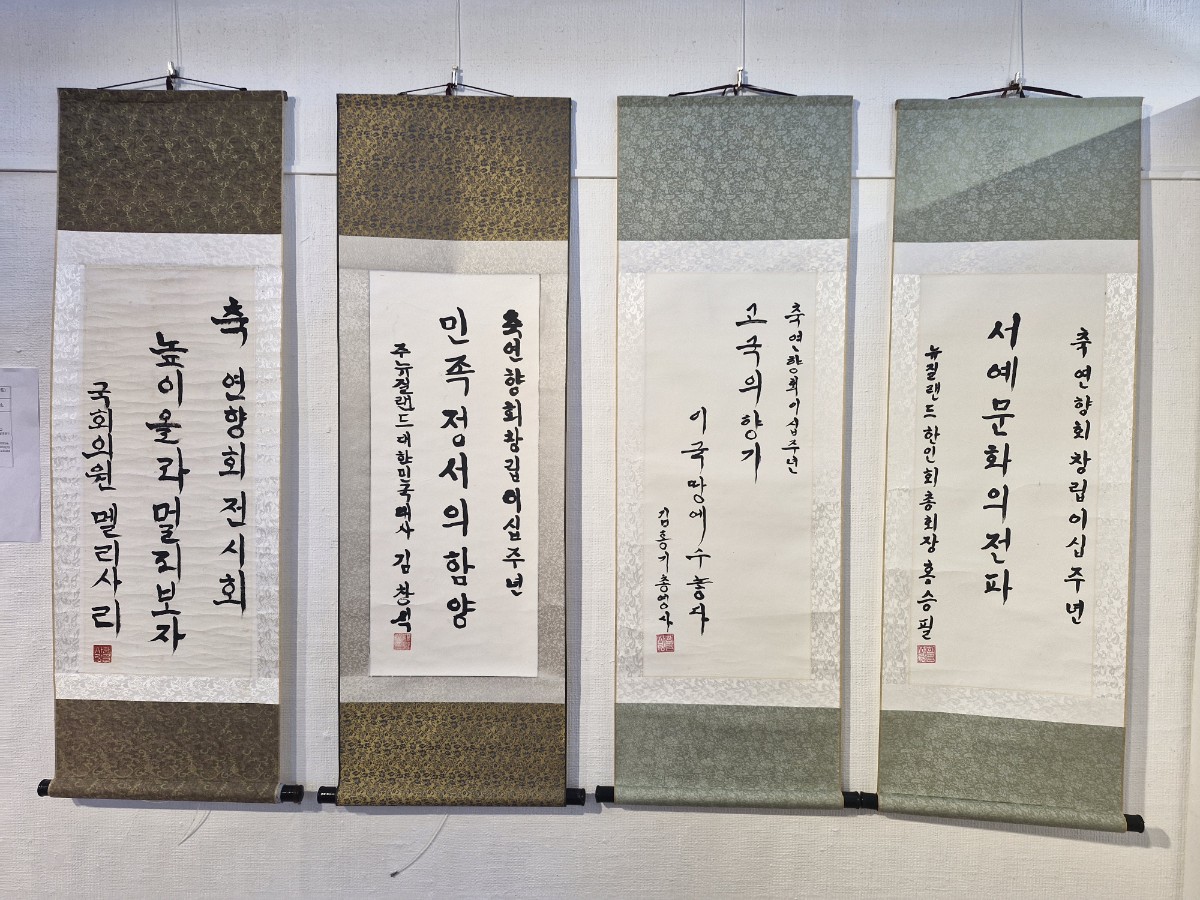 축 연향회 전시회
높이 올라 멀리 보자
국회의원 멜리사 리
축 연향회 창립 이십주년
민족정서의 함양
주뉴질랜드 대한민국대사 김창식
축 연향회 이십주년
고국의 향기
이국땅에 수놓다
김홍기 총영사
축 연향회 창립 이십주년
서예문화의 전파
뉴질랜드 한인회 총회장 홍승필